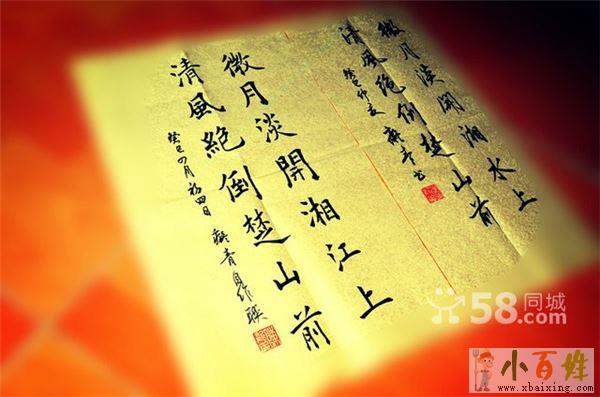 微月淡開湘水上
清風絕倒楚山前
癸巳仲夏
微月淡開湘江上
清風絕倒楚山前
癸巳四月初四日 青自作聯
58同城
.com
小百姓
www.xbaixing.com